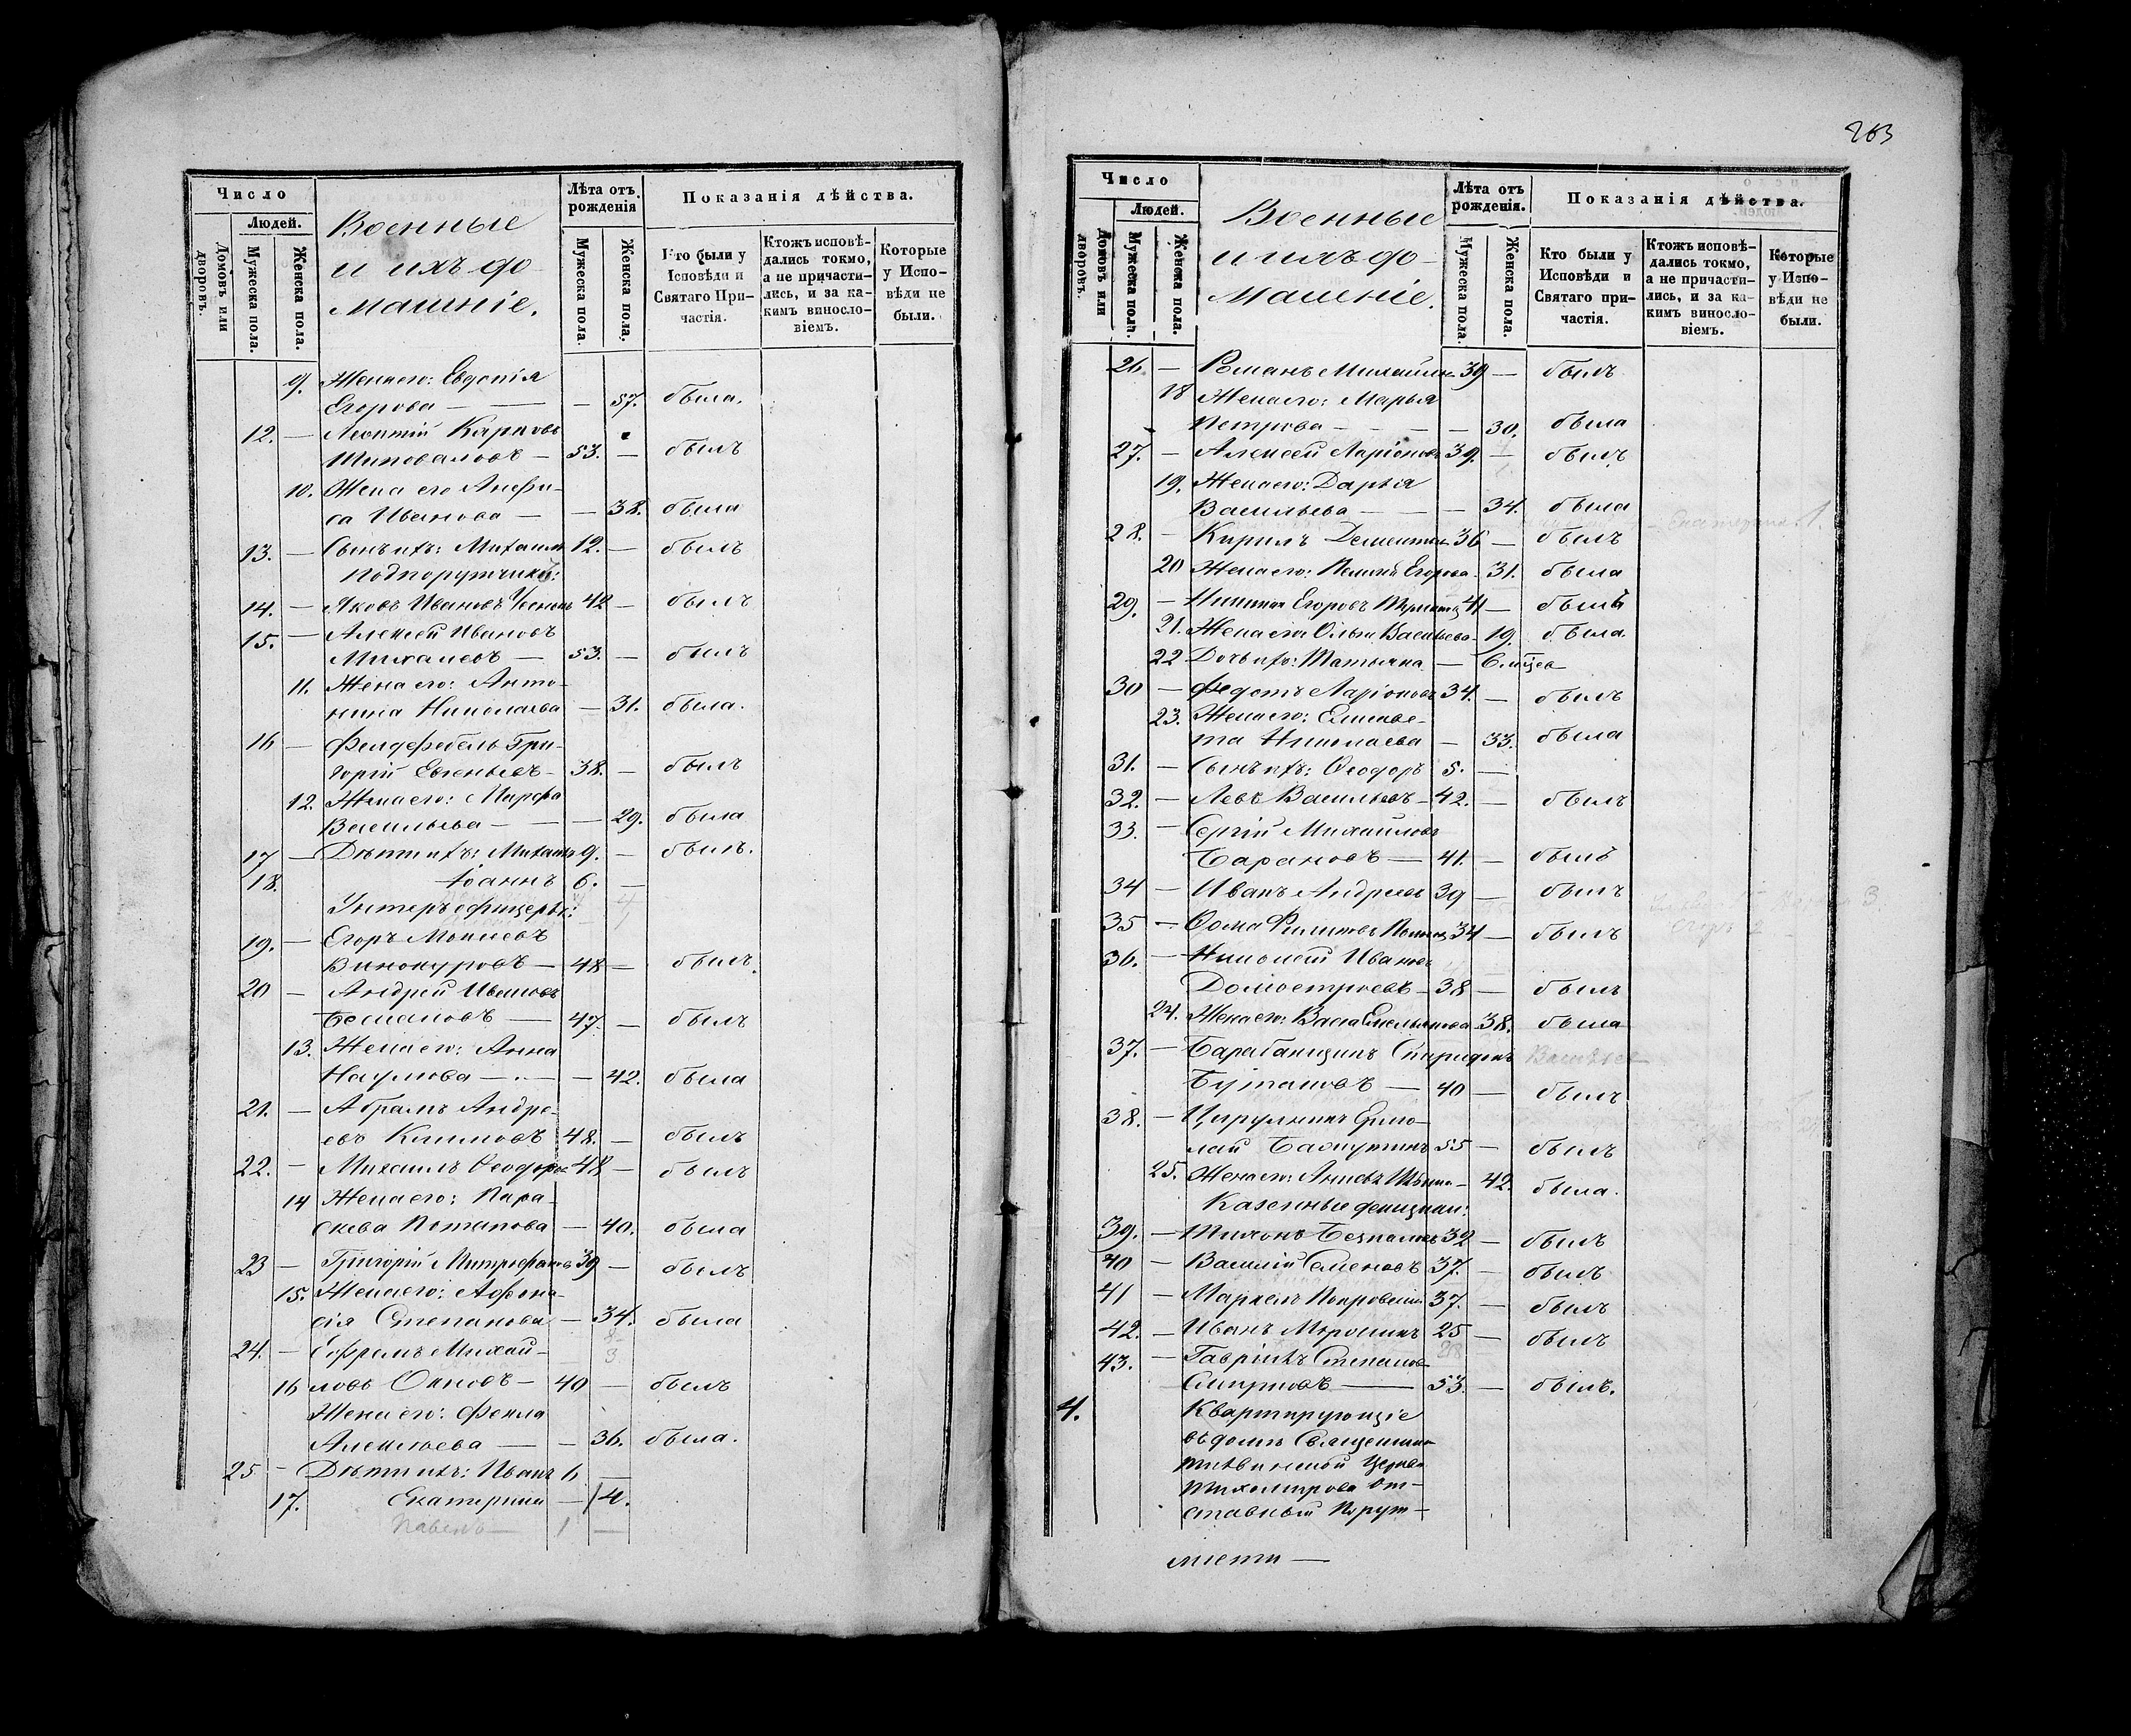 263
Число
Людей.
Домовъ или дворовъ.
Мужеска пола.
Женска пола.
Военные
и ихъ до-
машніе.
Лѣта отъ рожденія
Мужеска пола.
Женска пола.
Показанія дѣйства.
Кто были у Исповѣди и Святаго При-частія.
Ктожъ исповѣ-дались токмо, а не причасти-лись, и за ка-кимъ винослo-віемъ.
Которые у Испо-вѣди не были.
9. Жена его: Евдокія
Егорова — — 57. была.
12. — Леонтій Карповъ
Шиповаловъ — 53. — былъ
10. Жена его Анфи-
са Иванова — — 38. была
13. — Сынъ ихъ: Михаилъ 12. — былъ
Подпоручики:
14. — Яковъ Ивановъ 42 — былъ
15. — Алексѣй Ивановъ
Михалевъ — 53. — былъ
11. Жена его: Анто-
нина Николаева — 31. была.
16 — Фелдфебель Гри-
горій Евгеньевъ — 38. — былъ
12. Жена его: Марфа
Васильева — — 29. была
17 — Дѣти ихъ: Михаилъ 9. — былъ.
18. Іоаннъ 6. —
Унтеръ офицеры:
19. — Егоръ Моисеевъ
Винокуровъ — 48 — былъ.
20 — Андрей Ивановъ
47. — былъ
13. Жена его: Анна
Наумова — — 42. была
21. — Абрамъ Андре-
евъ Климовъ 48. — былъ
22. — Михаилъ Ѳеодоровъ 48 — былъ
14 Жена его: Пара-
скева Потапова — 40. была
23 — Григорій Митрофановъ 39 — былъ
15. Жена его: Афона-
сія Степанова — 34. была
24. — Ефремъ Михай-
16 ловъ Окновъ — 40 — былъ
Жена его: Фекла
Алексѣева — — 36. была.
25 — Дѣти ихъ: Иванъ 6 —
17. Екатерина — 4.
Павелъ — 1 —
Число
Людей.
Домовъ или дворовъ.
Мужеска пола.
Женска пола.
Военные
и ихъ до-
машніе.
Лѣта отъ рожденія.
Мужеска пола.
Женска пола.
Показанія дѣйства.
Кто были у Исповѣди и Святаго при-частія.
Ктожъ исповѣ-дались токмо, а не причасти-лись, и за ка-кимъ винослo-віемъ.
Которые у Испо-вѣди не были.
26. — Романъ Михайловъ 39 — былъ
18 Жена его: Марья
Петрова — — 30. была
27. — Алексѣй Ларіоновъ 39. — былъ
19. Жена его: Дарья
Васильева — — 34. была
Екатерина 1.
28. — Кирилъ Дементьевъ 36 — былъ
20 Жена его: Егорова — 31. была
29. — Никита Егоровъ 41 — былъ
21. Жена его Ольга Васильева — 19. была
22 Дочь ихъ: Татьяна — 6. мѣсев
30 — Федотъ Ларіоновъ 34. — былъ
23. Жена его: Елисаве-
та Николаева — 33. была
31. — Сынъ ихъ: Ѳеодоръ 5. —
32. — Левъ Васильевъ — 42. — былъ
33. — Сергій Михайловъ
Барановъ — 41. — былъ
34 — Иванъ Андреевъ 39 — былъ
35 — Ѳома Филиповъ 34 — былъ
36. — Николай Ивановъ
Домостроевъ — 38 — былъ
24. Жена его: Васса Емельянова — 38. была
37. — Барабанщикъ Спиридонъ Васильев
40 — былъ
38. — Цирульникъ Ермо-
лай 55 — былъ
25. Жена его: — 42. была.
Казенные денщики:
39. — Тихонъ 32 — былъ
40 — Василій Семеновъ 37. — былъ
41 — Маркелъ Покровскій 37. — былъ
42. — Иванъ Морошкинъ 25 — былъ
43. — Гавріилъ Степановъ
Смирновъ — 53. — былъ.
4. Квартирующіе
въ домѣ Священника
Тихвинской Церкви
Тихомирова От-
ставный Порут-